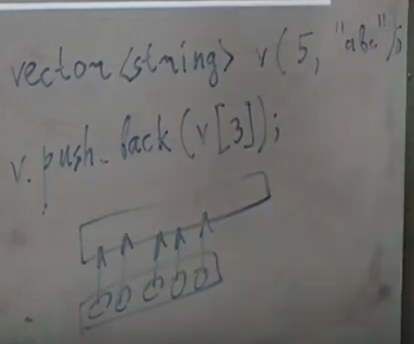 vector<string> v(5, "abc");
v.push_back(v[3]);